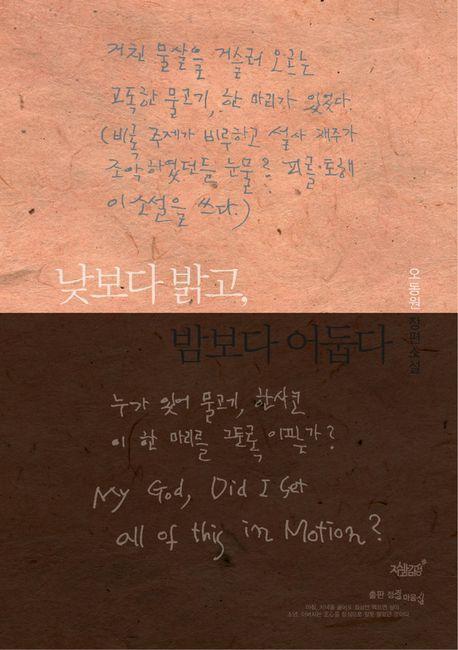 거친 물살을 거슬러 오르는
고독한 물고기, 한 마리가 있었다.
(비록 주제가 비루하고 설사 재주가
조악하였던들 눈물은 피를 토해
이 소설을 쓰다.)
낮보다 밝고,
밤보다 어둡다
오동원 장편소설
누가 있어 물고기, 한사코
이 한 마리를 그토록 아필까?
My God, Did I Set
all of this in Motion?
지식과감성
출판